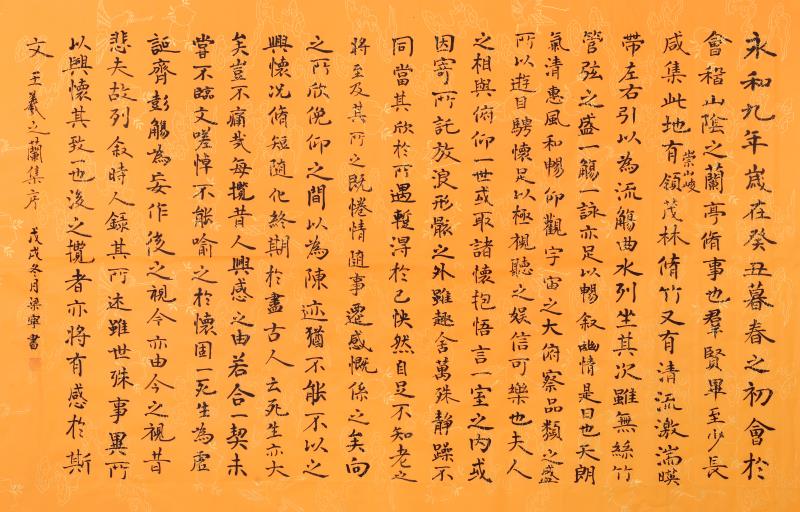 永和九年歲在癸丑暮春之初會於
會稽山陰之蘭亭脩事也羣賢畢至少長
咸集此地有崇山峻領茂林脩竹又有清流激湍暎
帶左右引以為流觴曲水列坐其次雖無絲竹
管弦之盛一觴一詠亦足以暢叙幽情是日也天朗
氣清惠風和暢仰觀宇宙之大俯察品類之盛
所以遊目騁懷足以極視聽之娛信可樂也夫人
之相與俯仰一世或取諸懷抱悟言一室之內或
因寄所託放浪形骸之外雖趣舍萬殊静躁不
同當其欣於所遇暫得於己怏然自足不知老之
將至及其所之既惓情隨事遷感慨係之矣向
之所欣俛仰之間以為陳迹猶不能不以之
興懷况脩短隨化終期於盡古人云死生亦大
矣豈不痛哉每攬昔人興感之由若合一契未
甞不臨文嗟悼不能喻之於懷固一死生為虛
誕齊彭觴為妄作後之視今亦由今之視昔
悲夫故列叙時人錄其所述雖世殊事異所
以興懷其致一也後之攬者亦將有感於斯
文 王羲之蘭集序 戊戌冬月梁寧書